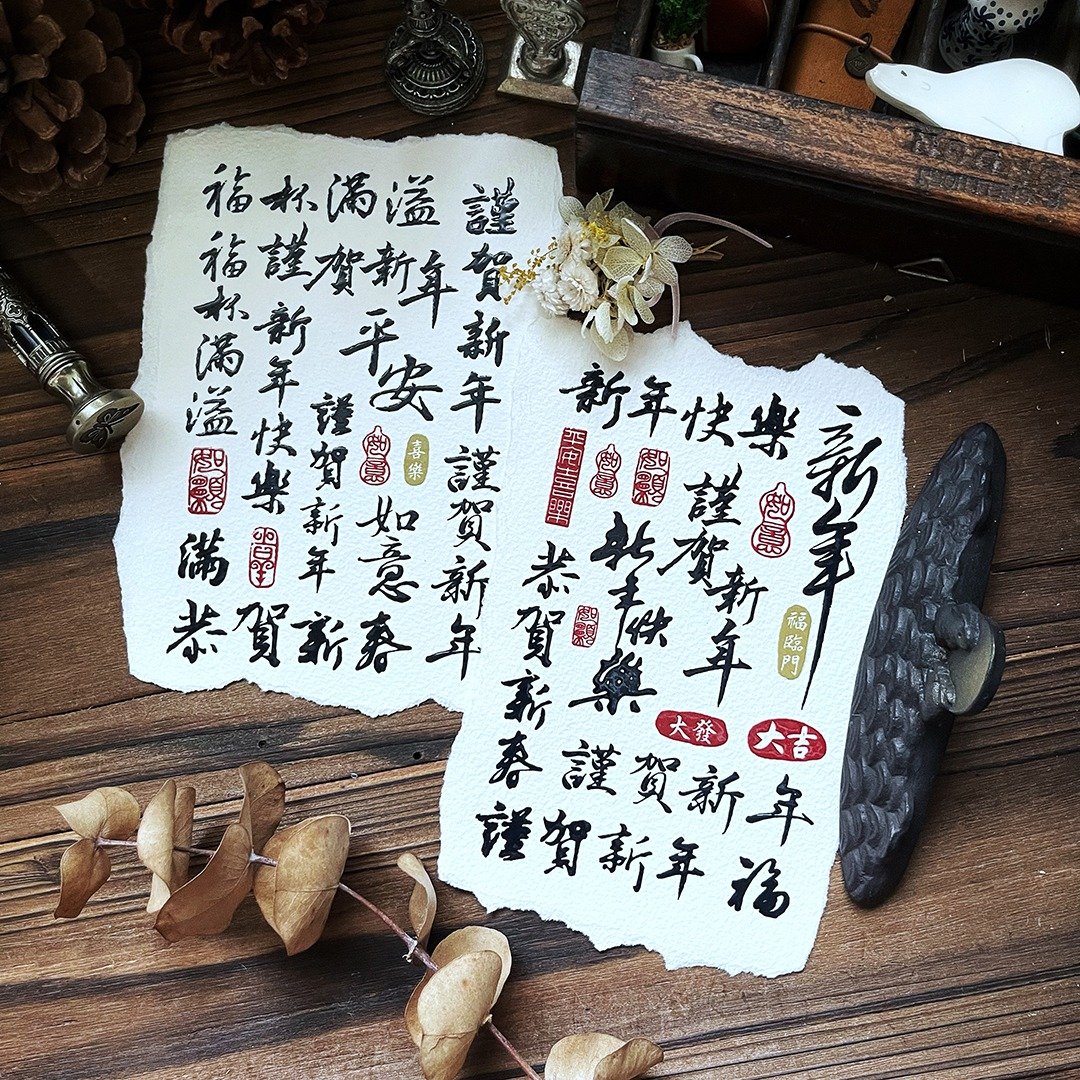 福杯滿溢
謹賀新年
福杯滿溢
謹賀新年
新年快樂
平安
謹賀新年
如意
喜樂
謹賀新年
如願
如意
滿
恭賀新春
新年快樂
新年
平安喜樂
如意
如願
如意
謹賀新年
恭賀新春
新年快樂
如願
福臨門
大發
大吉
謹賀新年
謹賀新年
福